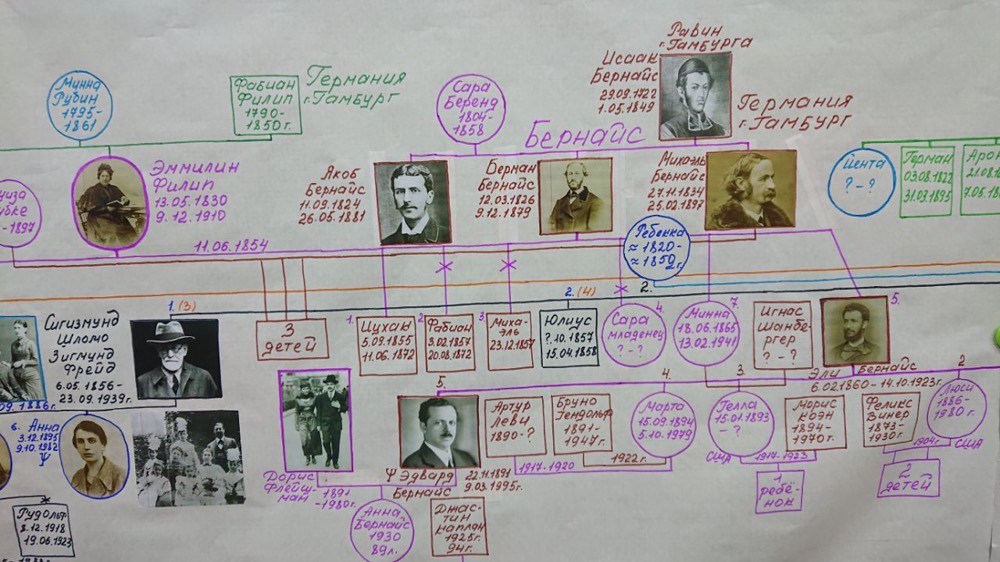 Минна
Рубин
1795-
1861
Фабиан
Филип
1790-
1850г.
Германия
г.Гамбург
Сара
Беренд
1804-
1858
Равин
г.Гамбурга
Исаак
Бернайс
1.05.1849
Германия
г.Гамбург
Бернайс
Эммилин
Филип
13.05.1830
9.12.1910
Якоб
Бернайс
11.09.1824
26.05.1881
Берман
Бернайс
12.03.1826
9.12.1879
Михаэль
Бернайс
27.11.1834
25.02.1897
Йента
?-?
Герман
03.08.1822
31.03.1895
-1897
11.06.1854
Ребекка
≈1820-
≈1852г.
2.
1.(3)
Сигизмунд
Шломо
Зигмунд
Фрейд
6.05.1856-
23.09.1939г.
09.1886г.
3
детей
1.
Ицхак
5.09.1855
11.06.1872
2.
Фабиан
3.02.1857
20.08.1872
3.
Миха-
эль
23.12.1857
2.(4)
Юлиус
?.10.1857
15.04.1858
4.
Сара
младенец
?-?
7.
Минна
18.06.1865
13.02.1941
Игнас
Шанбе-
ргер
?-?
5.
Эли Бернайс
6.02.1860-14.10.1923г.
6. Анна
3.12.1895
9.10.1982
Ψ
Рудольф
8.12.1918
19.06.1923
Дорис
Флейш-
ман
1891
-1980г.
5.
Ψ Эдвард
Бернайс
22.11.1891
9.03.1995г.
Анна
Бернайс
1930
89л.
Джас-
тин
Каплан
1925г.
94г.
Артур
Леви
1890-?
1917-1920
Бруно
Гендольф
1891-
1947г.
1922г.
4.
Марта
15.09.1894
5.10.1979
3
Гелла
15.02.1893
-?
США
1917-1923
1
ребё-
нок
Морис
Коэн
1894-
1970г.
Феликс
Винер
1873-
1930г.
2
Люси
1886-
1980г.
1904г.
США
2
детей